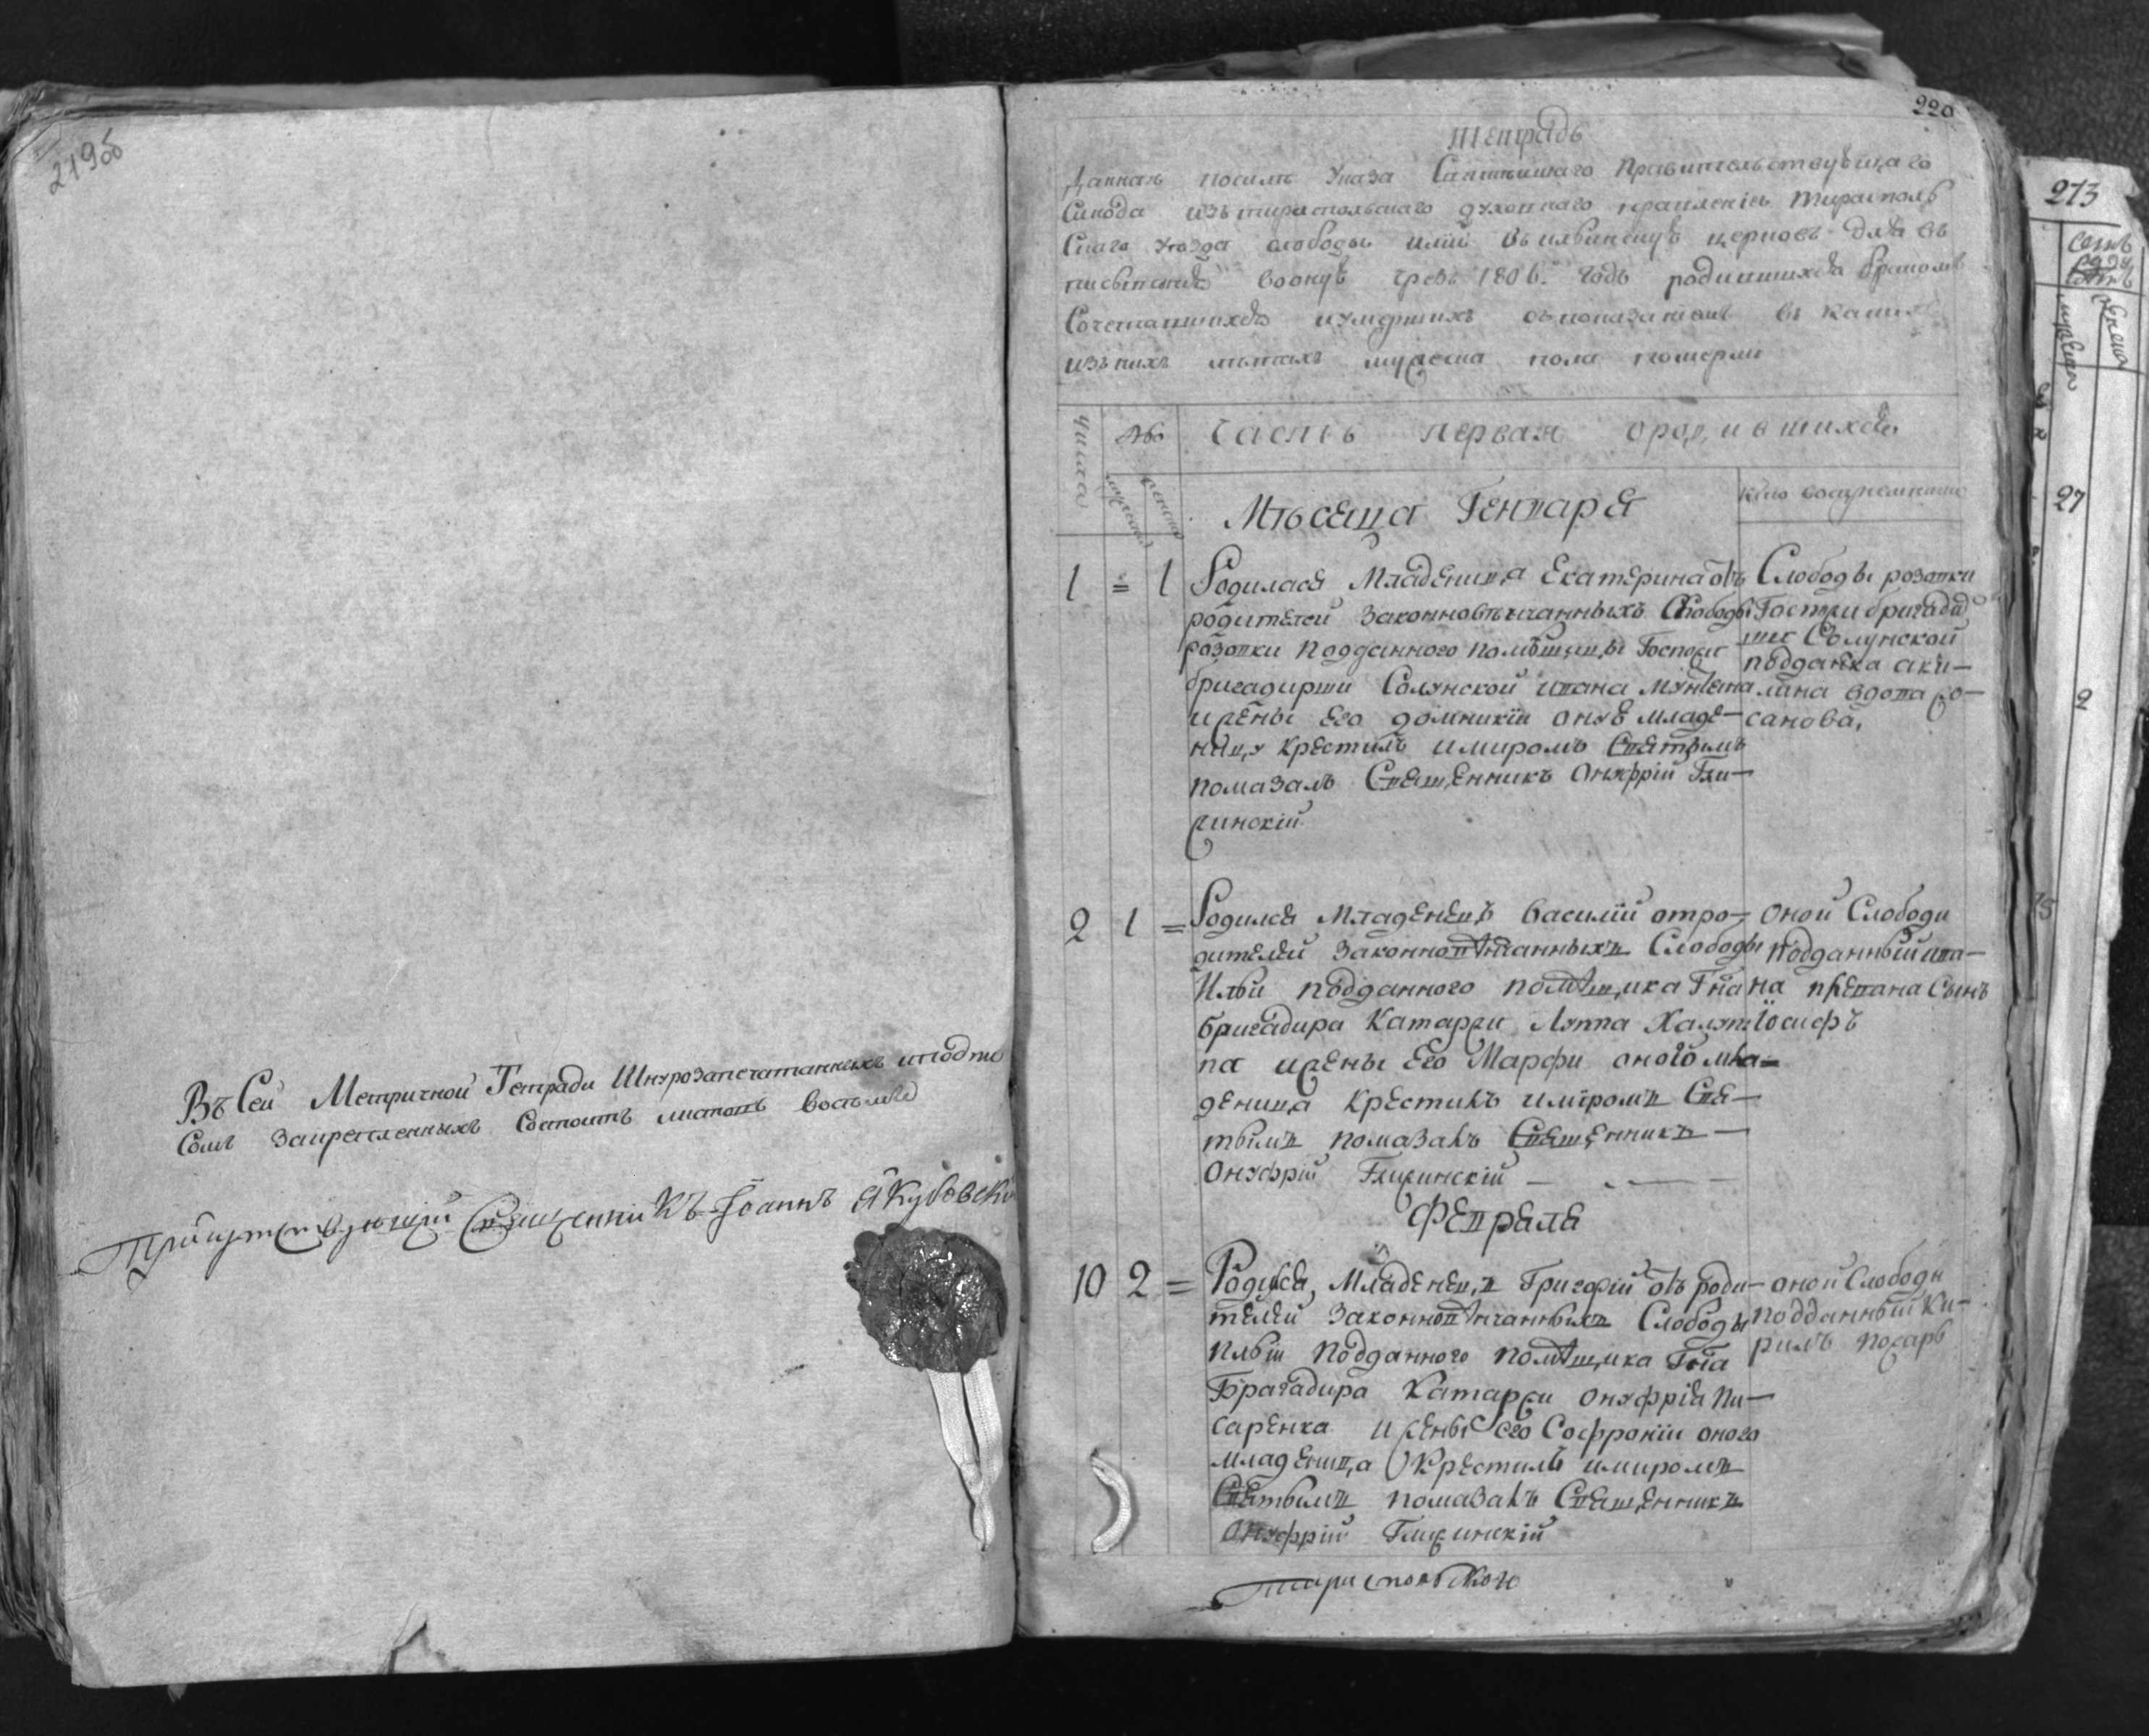 219об
Въ Сей Метричной Тетради Шнурозапечатанныхъ иподпи
Сомъ Закрепленныхъ Состоитъ листовъ восемь
Присутствующій Священникъ Іоаннъ Якубовскі
220
Тетрадь
Данная посилѣ Указа Святѣйшаго Правительствующаго
Синода изъ тираспольскаго духовнаго правленія тирасполь
Скаго уезда слободы илїи въ ильинскую церковь для въ
писыванія воону чрезъ 1806. годъ родившихся бракомъ
Сочетавшихся иумершихъ съпоказаніемъ въ какихъ
изъ нихъ лѣтахъ мужеска пола померли
Числа
мужеска
женска
Часть первая ородившихся
Мѣсеца Генваря
кто воспрїемники
1 = 1 Родилася Младеница Екатерина отъ
родителей законновѣнчанныхъ Слободы
розовки подданного помѣщицы Госпожи
бригадирши Солунской ивана мунтяна
ижены Его домникїи онуе младе-
ницу крестилъ имиромъ Святымъ
помазалъ Священникъ Онуфрїй Гли-
жинскїй
Слободы розовки
Госпожи бригадир
ши Солунской
подданка аки-
лина вдова ро-
санова,
2 1 = Родился Младенецъ Василїй отро-
дителей законновѣнчанныхъ Слободы
Ильи подданного помѣщика Гна
бригадира Катаржи Луппа Халупт
па ижены Его Марфи оного мла-
денца крестилъ имиромъ Свя-
тымъ помазалъ Священникъ
Онуфрїй Глижинскїй
оной Слободы
подданный ива-
на препана Сынъ
Іосифъ
Февраля
10 2 = Родился, Младенецъ Григорїй отъ роди-
телей законновѣнчанныхъ Слободы
Ильїи подданного помѣщика Гна
Брагадира Катаржи Онуфрїя Пи-
саренка ижены его Софронїи оного
младенца Крестилъ имиромъ
Святымъ помазалъ Священникъ
Онуфрїй Глижинскїй
оной Слободы
подданный Ки-
рилъ пожарь
Тираспольского
213
27
2
15